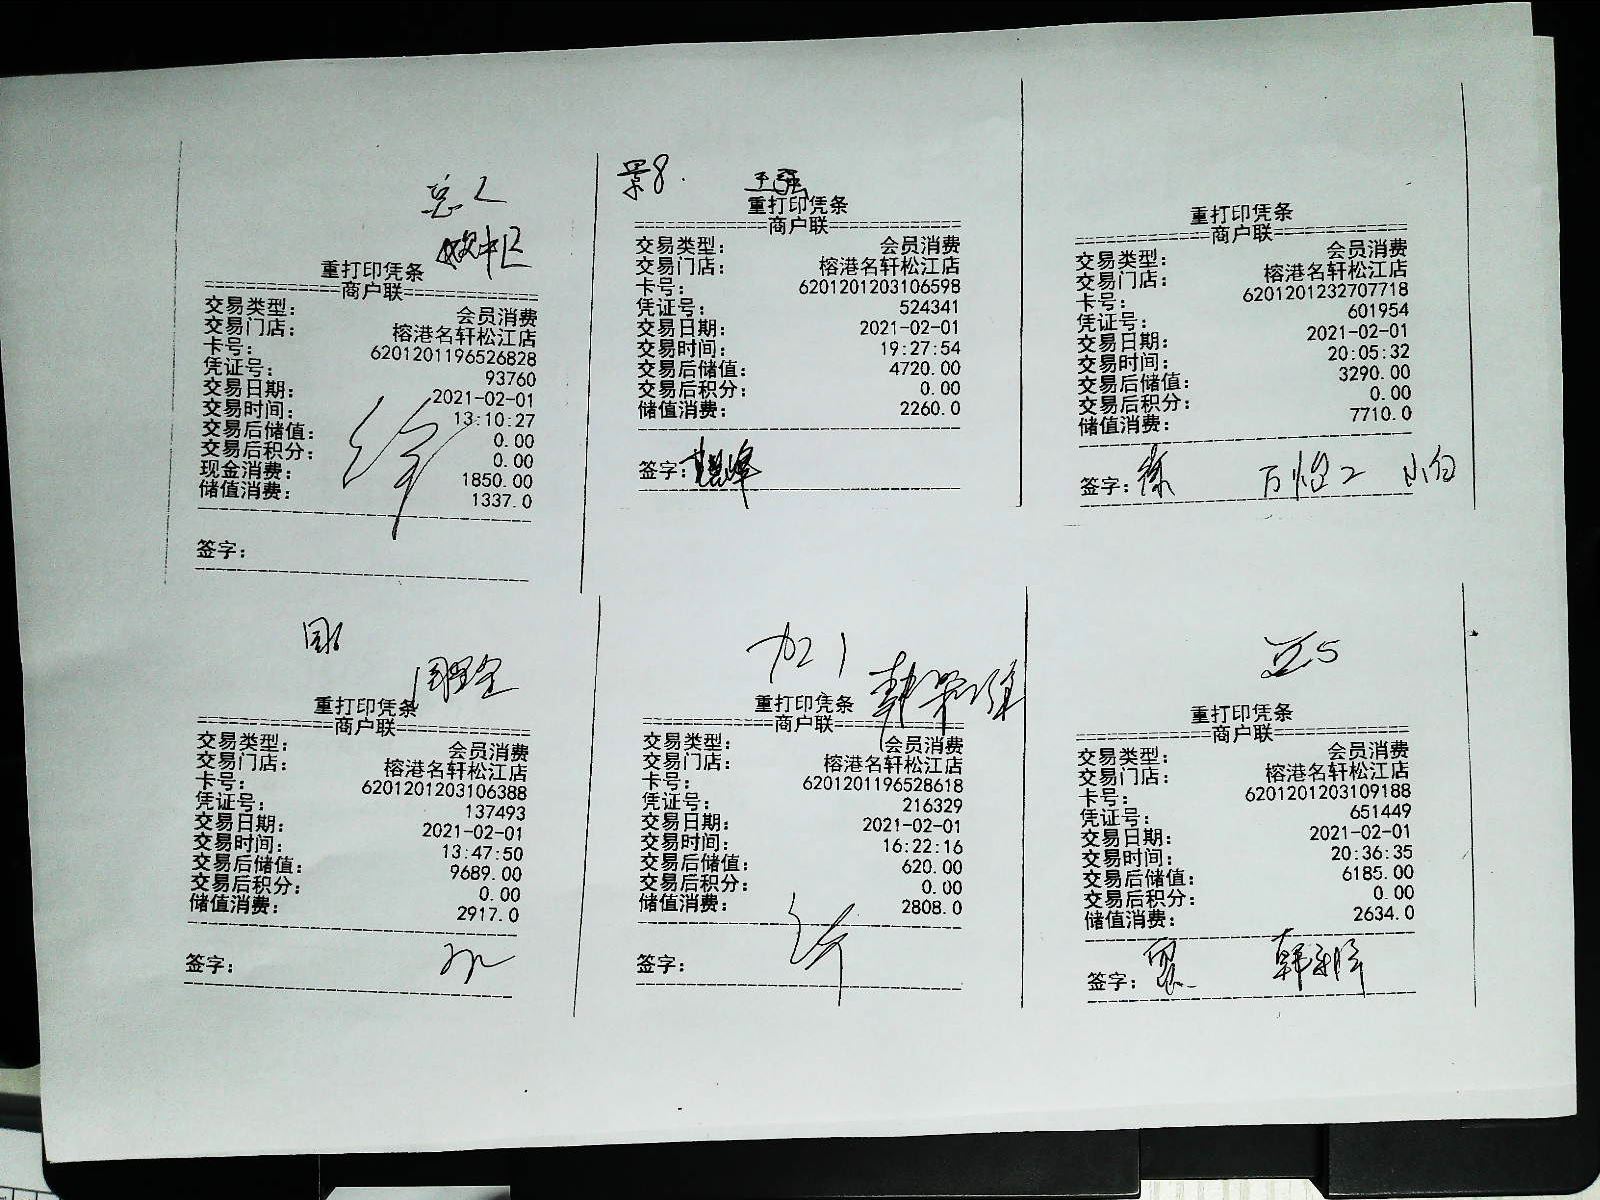 重打印凭条
============商户联============
交易类型: 会员消费
交易门店: 榕港名轩松江店
卡号: 6201201196526828
凭证号: 93760
交易日期: 2021-02-01
交易时间: 13:10:27
交易后储值: 0.00
交易后积分: 0.00
现金消费: 1850.00
储值消费: 1337.0
签字:
景8.
王强
重打印凭条
============商户联============
交易类型: 会员消费
交易门店: 榕港名轩松江店
卡号: 6201201203106598
凭证号: 524341
交易日期: 2021-02-01
交易时间: 19:27:54
交易后储值: 4720.00
交易后积分: 0.00
储值消费: 2260.0
签字:
重打印凭条
============商户联============
交易类型: 会员消费
交易门店: 榕港名轩松江店
卡号: 6201201232707718
凭证号: 601954
交易日期: 2021-02-01
交易时间: 20:05:32
交易后储值: 3290.00
交易后积分: 0.00
储值消费: 7710.0
签字:
重打印凭条
============商户联============
交易类型: 会员消费
交易门店: 榕港名轩松江店
卡号: 6201201203106388
凭证号: 137493
交易日期: 2021-02-01
交易时间: 13:47:50
交易后储值: 9689.00
交易后积分: 0.00
储值消费: 2917.0
签字:
加1
重打印凭条
============商户联============
交易类型: 会员消费
交易门店: 榕港名轩松江店
卡号: 6201201196528618
凭证号: 216329
交易日期: 2021-02-01
交易时间: 16:22:16
交易后储值: 620.00
交易后积分: 0.00
储值消费: 2808.0
签字:
重打印凭条
============商户联============
交易类型: 会员消费
交易门店: 榕港名轩松江店
卡号: 6201201203109188
凭证号: 651449
交易日期: 2021-02-01
交易时间: 20:36:35
交易后储值: 6185.00
交易后积分: 0.00
储值消费: 2634.0
签字: